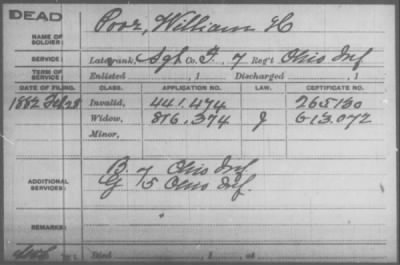 DEAD
NAME OF SOLDIER: Poor, William H
SERVICE: Late rank, Sgt Co. F, 7 Reg't Ohio Inf
TERM OF SERVICE: Enlisted , 1 Discharged , 1
DATE OF FILING. CLASS. APPLICATION NO. LAW. CERTIFICATE NO.
1882 Feb 28 Invalid, 441.474 265130
Widow, 816.374 J 613.072
Minor,
ADDITIONAL SERVICES: B. 7 Ohio Inf.
G 5 Ohio Inf.
REMARKS:
Died , 1 , at